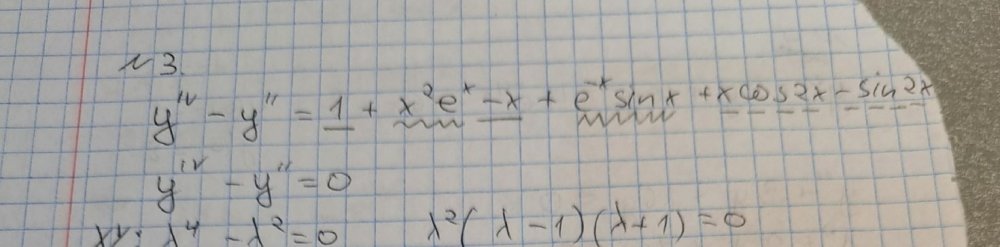 №3.
y^IV - y'' = 1 + x²e^x - x + e^-x sin x + x cos 2x - sin 2x
y^IV - y'' = 0
ХУ: λ⁴ - λ² = 0 λ²(λ - 1)(λ + 1) = 0